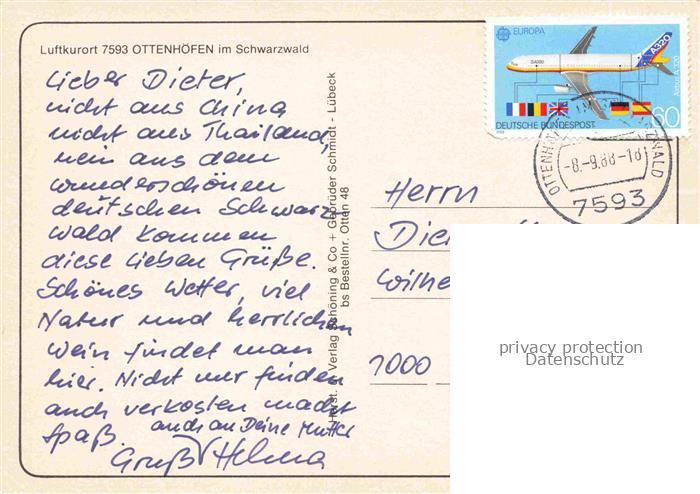 Luftkurort 7593 OTTENHÖFEN im Schwarzwald
Lieber Dieter,
nicht aus China
nicht aus Thailand,
nein aus dem
wunderschönen
deutschen Schwarz-
wald kommen
diese lieben Grüße.
Schönes Wetter, viel
Natur und herrlichen
Wein findet man
hier. Nicht nur finden
auch verkosten macht
Spaß. auch an Deine Mutter
Gruß Helma
Verlag Schöning & Co + Gebrüder Schmidt - Lübeck
bs Bestellnr. Otten 48
EUROPA
A320
Airbus A 320
DEUTSCHE BUNDESPOST
60
OTTENHÖFEN IM SCHWARZWALD
-8.-9.88-18
7593
Herrn
1000
privacy protection
Datenschutz